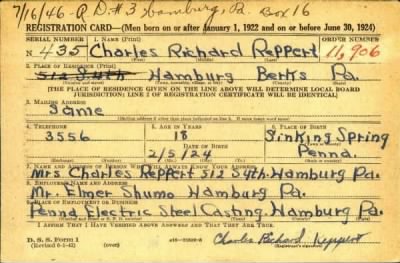 7/16/46 - R.D. #3 Hamburg Pa. Box 16
REGISTRATION CARD—(Men born on or after January 1, 1922 and on or before June 30, 1924)
SERIAL NUMBER 1. NAME (Print) ORDER NUMBER
N 435 Charles Richard Reppert 11,906
2. PLACE OF RESIDENCE (Print)
512 S 4th Hamburg Berks Pa.
[THE PLACE OF RESIDENCE GIVEN ON THE LINE ABOVE WILL DETERMINE LOCAL BOARD
JURISDICTION; LINE 2 OF REGISTRATION CERTIFICATE WILL BE IDENTICAL]
3. MAILING ADDRESS
Same
4. TELEPHONE 5. AGE IN YEARS 6. PLACE OF BIRTH
3556 18 Sinking Spring
DATE OF BIRTH
2/5/24 Penna.
7. NAME AND ADDRESS OF PERSON WHO WILL ALWAYS KNOW YOUR ADDRESS
Mrs Charles Reppert 512 S 4th. Hamburg Pa.
8. EMPLOYER'S NAME AND ADDRESS
Mr. Elmer Shumo Hamburg Pa.
9. PLACE OF EMPLOYMENT OR BUSINESS
Penna Electric Steel Casting. Hamburg Pa.
I AFFIRM THAT I HAVE VERIFIED ABOVE ANSWERS AND THAT THEY ARE TRUE.
D. S. S. Form 1
(Revised 6-1-42) (over) Charles Richard Reppert
(Registrant's signature)